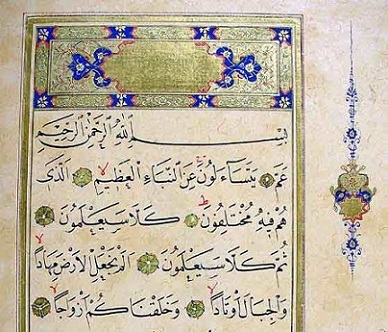 بِسْمِ اللّٰهِ الرَّحْمٰنِ الرَّحِيمِ
عَمَّ يَتَسَاءَلُونَ عَنِ النَّبَاِ الْعَظِيمِ الَّذٖى
هُمْ فِيهِ مُخْتَلِفُونَ كَلَّا سَيَعْلَمُونَ
ثُمَّ كَلَّا سَيَعْلَمُونَ اَلَمْ نَجْعَلِ الْاَرْضَ مِهَادًا
وَالْجِبَالَ اَوْتَادًا وَخَلَقْنَاكُمْ اَزْوَاجًا